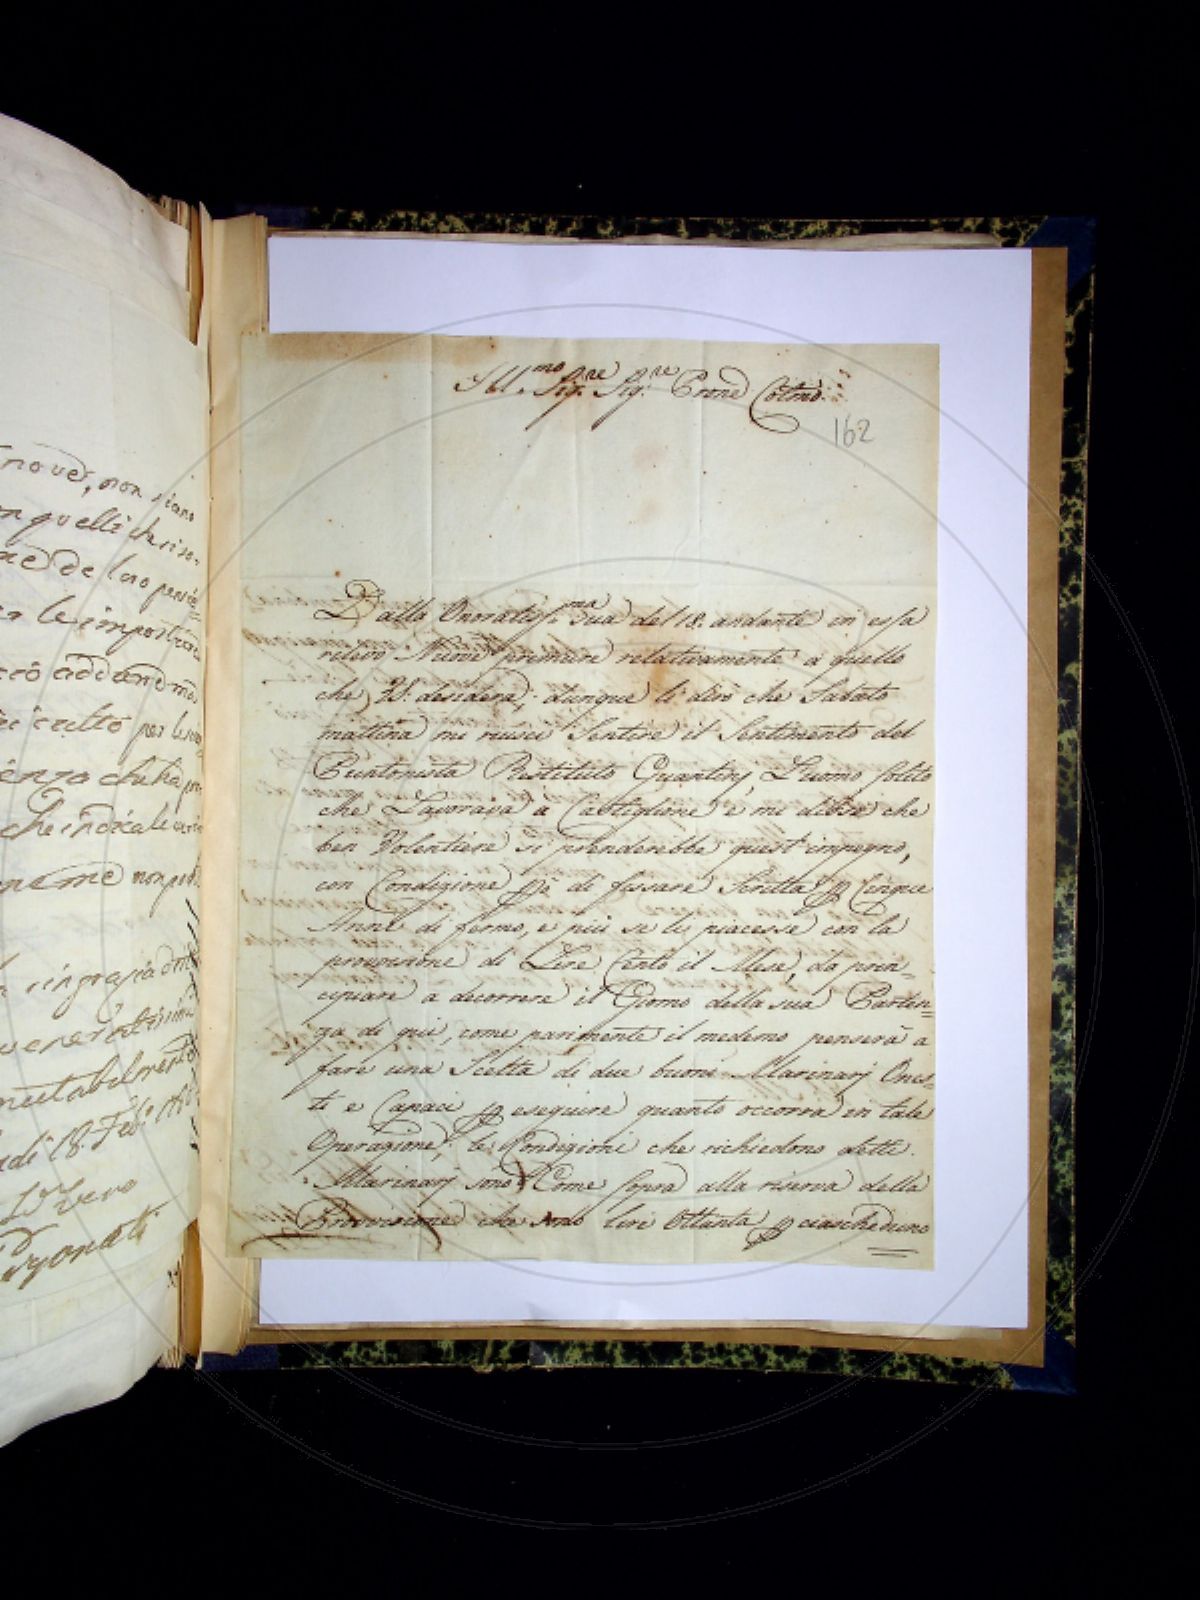 nove, non siano
quelli che rise-
de loro pensie=
le importanze
però addandomi
culto per le sue
che ha
che indica le
me non
ringraziando
18 Feb:
Devo
Ill.mo Sig.re Sig.re Prone Colmo
162
Dalla Onoratis.ma sua del 18. andante in essa
rilevo Nuove premure relativamente a quello
che VS: desidera; dunque li dirò che Sabato
mattina mi riuscì Sentire il Sentimento del
Puntonista Restituto Quantinj, L'uomo solito
che Lavorava a Castiglione e mi disse che
ben Volentieri si prenderebbe quest'impegno,
con Condizione pò di fissare Scritta p Cinque
Anni di fermo, e più se li piacesse con la
provisione di Lire Cento il Mese, da prin-
cipiare a decorrere il Giorno della sua Parten=
za di qui, come parimente il medemo penserà a
fare una Scelta di due buoni Marinarj Ones=
ti e Capaci p eseguire quanto occorra in tale
Operazione, le Condizioni che richiedono dette
Marinarj sono Come sopra alla riserva della
Provvisione che sono lire Ottanta p ciascheduno